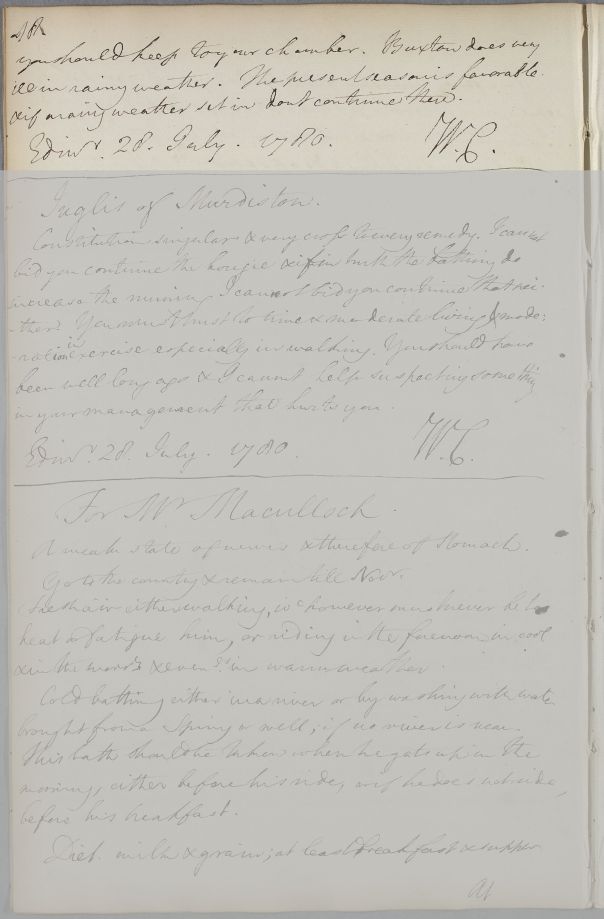 48
you should keep to your chamber. Buxton does very
ill in rainy weather. The present season is favorable
& if a rainy weather set in dont continue there.
Edinr. 28. July. 1780.
W.C.
Inglis of Murdiston.
Constitution singular & very cross to every remedy. I cannot
bid you continue the bougie & if in truth the bathing do
increase the running I cannot bid you continue that nei-
ther. You must trust to time & moderate living & mode:
ration in exercise especially in walking. You should have
been well long ago & I cannot help suspecting something
in your management that hurts you.
Edinr. 28. July. 1780.
W.C.
For Mr Maculloch.
A weak state of nerves & therefore of Stomach.
Go to the country & remain till Novr.
fresh air either walking, wc however must never be to
heat or fatigue him, or riding in the forenoon in cool
& in the morng & eveng in warm weather.
Cold bathing either in a river or by washing with water
brought from a Spring or well; if no river is near.
This bath should be taken when he gets up in the
morning, either before his ride, or if he does not ride,
before his breakfast.
Diet. milk & grains; at least breakfast & supper
At